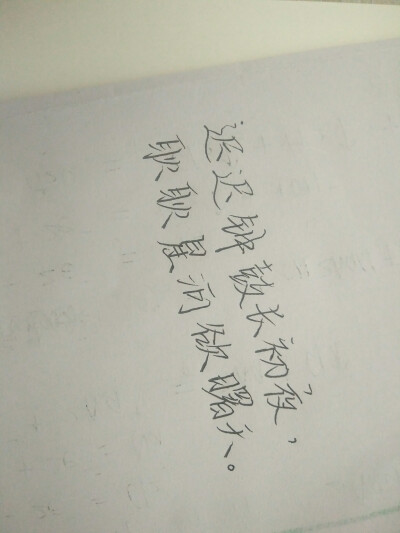 迟迟钟鼓长初夜，
耿耿星河欲曙天。